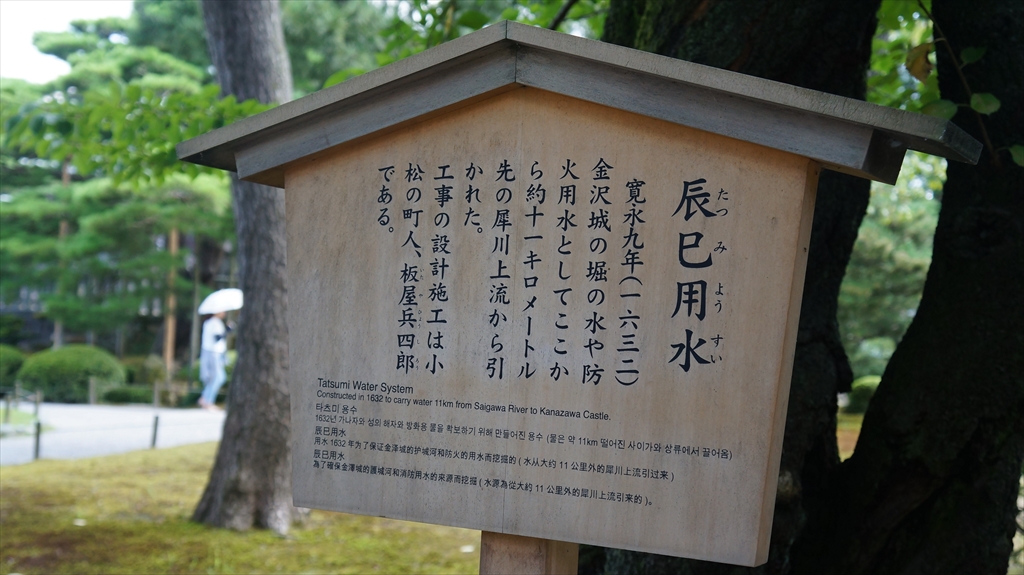 辰巳用水
たつみようすい
寛永九年(一六三二)
金沢城の堀の水や防
火用水としてここか
ら約十一キロメートル
先の犀川上流から引
かれた。
工事の設計施工は小
松の町人、板屋兵四郎
である。
Tatsumi Water System
Constructed in 1632 to carry water 11km from Saigawa River to Kanazawa Castle.
타츠미 용수
1632년 가나자와 성의 해자와 방화용 물을 확보하기 위해 만들어진 용수 (물은 약 11km 떨어진 사이가와 상류에서 끌어옴)
辰巳用水
用水 1632 年为了保证金泽城的护城河和防火的用水而挖掘的 ( 水从大约 11 公里外的犀川上流引过来 )
辰巳用水
為了確保金澤城的護城河和消防用水的來源而挖掘 ( 水源為從大約 11 公里外的犀川上流引来的 )。